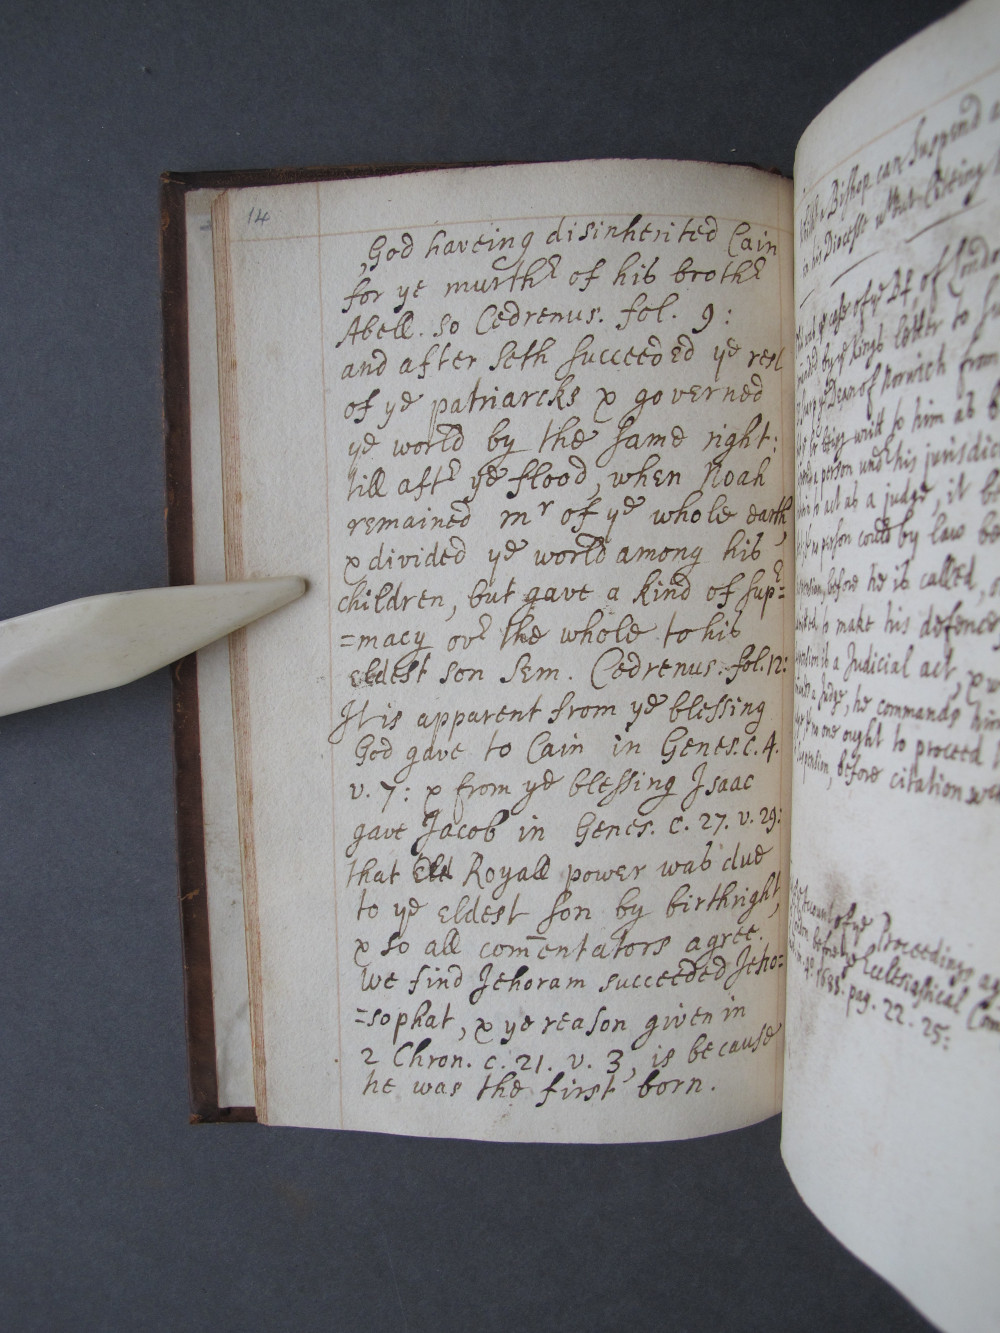 14
God haveing disinherited Cain
for ye murthr of his brothr
Abell. so Cedrenus. fol. 9:
and after Seth succeeded ye rest
of ye patriarcks & governed
ye world by the same right:
till aftr ye flood, when Noah
remained mr of ye whole earth,
& divided ye world among his
children, but gave a kind of supr=
=macy ovr the whole to his
eldest son Sem. Cedrenus. fol. 12:
It is apparent from ye blessing
God gave to Cain in Genes. c. 4.
v. 7: & from ye blessing Isaac
gave Jacob in Genes. c. 27. v. 29:
that Royall power was due
to ye eldest son by birthright,
& so all com̅entators agree.
We find Jehoram succeeded Jeho=
=sophat, & ye reason given in
2 Chron. c. 21. v. 3, is because
he was the first born.
Bishop can suspend
in his Diocesse without Citing
case of ye Bp. of London
by ye Kings letter to
ye Dean of Norwich from
being writt to him as
a person undr his jurisdic
to act as a judge, it
person could by law be
before he is called,
to make his defence
is a Judicial act, &
a Judge, he commands him
no one ought to proceed
suspension, before citation
Account of ye Proceedings
London before ye Ecclesiastical Com
in 4o. 1688. pag. 22. 25: